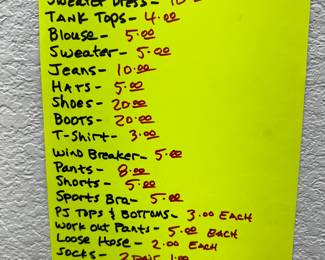 Sweater Dress- 10
Tank Tops- 4.00
Blouse- 5.00
Sweater- 5.00
Jeans- 10.00
Hats- 5.00
Shoes- 20.00
Boots- 20.00
T-Shirt- 3.00
Wind Breaker- 5.00
Pants- 8.00
Shorts- 5.00
Sports Bra- 5.00
PJ Tops & Bottoms- 3.00 Each
Work Out Pants- 5.00 Each
Loose Hose- 2.00 Each
Socks- 2 pair 1.00